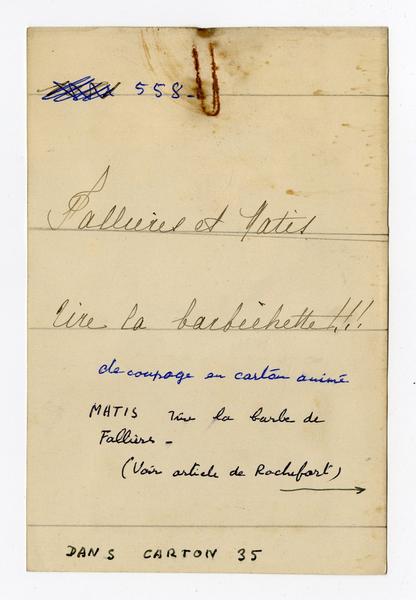 558 -
Fallières et Matis
tire la barbichette!!!
découpage en carton animé
MATIS tire la barbe de
Fallières -
(Voir article de Rochefort)
DANS CARTON 35